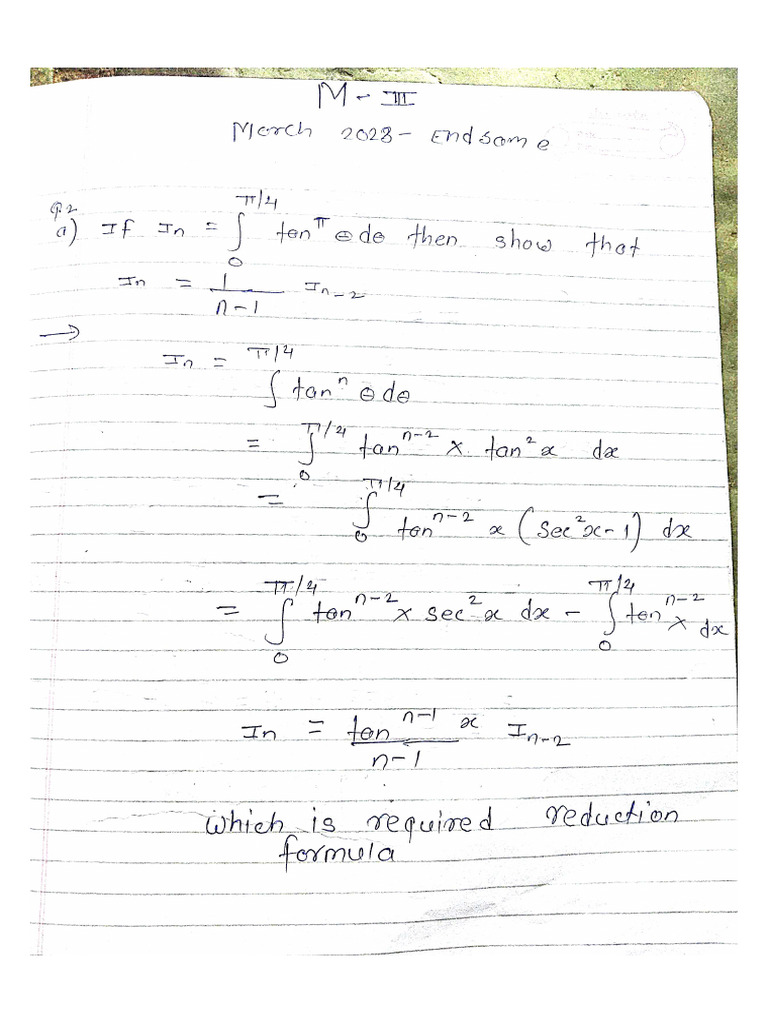 M - III
March 2023 - Endsame
Q.2
a) If In = ∫₀^π/4 tan^π θ dθ then show that
In = 1/(n-1) In-2
→
In = ∫^π/4 tanⁿ θ dθ
= ∫₀^π/4 tanⁿ⁻² x tan² x dx
= ∫₀^π/4 tanⁿ⁻² x (sec² x - 1) dx
= ∫₀^π/4 tanⁿ⁻² x sec² x dx - ∫₀^π/4 tanⁿ⁻² x dx
In = tanⁿ⁻¹ x/(n-1) In-2
which is required reduction
formula